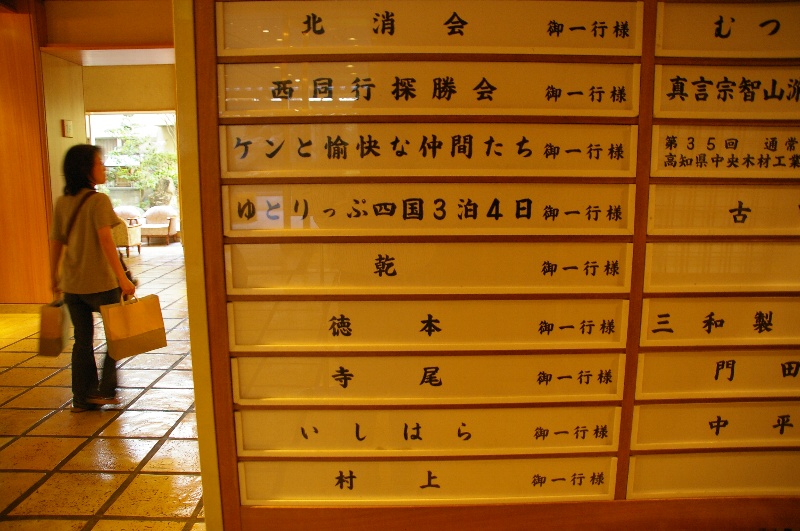 北消会 御一行様
西同行探勝会 御一行様
ケンと愉快な仲間たち 御一行様
ゆとりっぷ四国3泊4日 御一行様
乾 御一行様
徳本 御一行様
寺尾 御一行様
いしはら 御一行様
村上 御一行様
むつ
真言宗智山派
第35回 通常
高知県中央木材工業
古
三和製
門田
中平